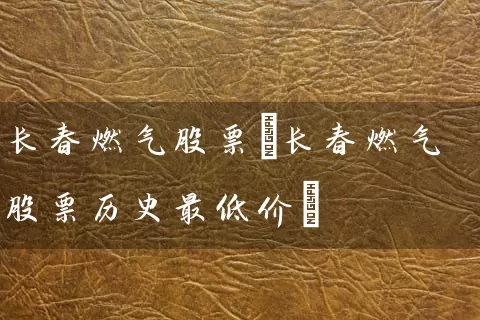 长春燃气股票长春燃气
股票历史最低价